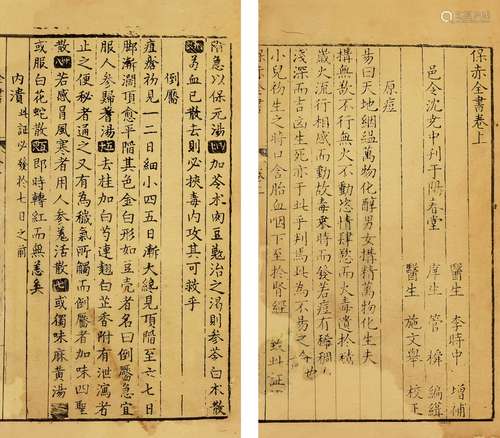 保赤全書卷上
邑令沈堯中刊于陽春堂
醫生 李時中 增補
庠生 管橓 編緝
醫生 施文舉 校正
原痘
易曰天地絪縕萬物化醇男女搆精萬物化生夫
搆無慾不行無火不動恣情肆慾而火毒遺於精
歲火流行相感而動故毒乘時而發若痘有稀稠
淺深而吉凶生死亦于此乎判焉此為不易之
小兒初生之時口含胎血咽下至於腎經 此証
陷急以保元湯 加苓朮肉豆蔻治之渴則參苓白朮散
為血已散去則必挾毒內攻其可救乎
倒靨
痘瘡初見一二日細小四五日漸大綻見頂陷至六七日
腳漸濶頂愈平陷其色金白形如豆殼者名曰倒靨急宜
服人參歸蓍湯 去桂加白芍連翹白芷香附有泄瀉者
止之便秘者通之又有為穢氣所觸而倒靨者加味四聖
散 若感冒風寒者用人參羗活散 或獨味麻黃湯
或服白花蛇散 即時轉紅而無恙矣
內潰 此証必發於七日之前